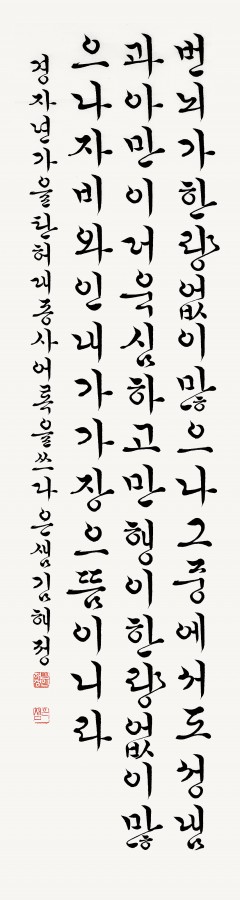 번뇌가한량없이많으나그중에서도성냄
과아만이더욱심하고만행이한량없이많
으나자비와인내가가장으뜸이니라
경자년가을탄허대종사어록을쓰다은샘김해정